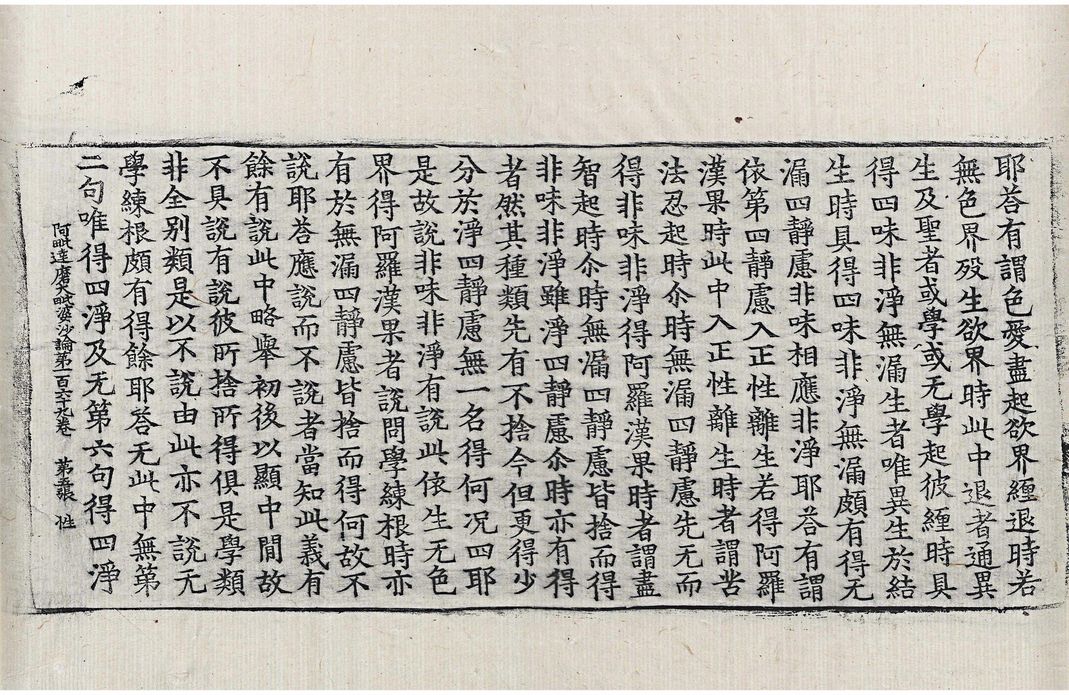 耶荅有謂色愛盡起欲界纏退時若
無色界歿生欲界時此中退者通異
生及聖者或學或无學起彼纏時具
得四味非淨無漏生者唯異生於結
生時具得四味非淨無漏頗有得无
漏四靜慮非味相應非淨耶荅有謂
依第四靜慮入正性離生若得阿羅
漢果時此中入正性離生時者謂苦
法忍起時尒時無漏四靜慮先无而
得非味非淨得阿羅漢果時者謂盡
智起時尒時無漏四靜慮皆捨而得
非味非淨雖淨四靜慮尒時亦有得
者然其種類先有不捨今但更得少
分於淨四靜慮無一名得何況四耶
是故說非味非淨有說此依生无色
界得阿羅漢果者說問學練根時亦
有於無漏四靜慮皆捨而得何故不
說耶荅應說而不說者當知此義有
餘有說此中略舉初後以顯中閒故
不具說有說彼所捨所得俱是學類
非全別類是以不說由此亦不說无
學練根頗有得餘耶荅无此中無第
二句唯得四淨及无第六句得四淨
阿毗達磨大毗婆沙論第一百六十九卷 第五張 性